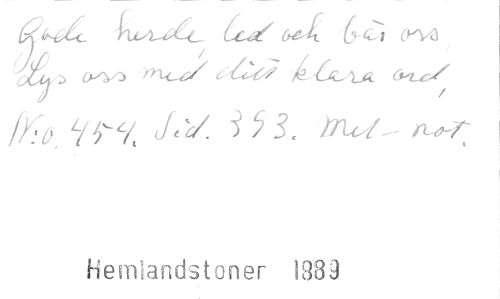 Gode herde, led och bär oss,
Lys oss med ditt klara ord,
N:o. 454. Sid. 393. Mel-not.
Hemlandstoner 1889